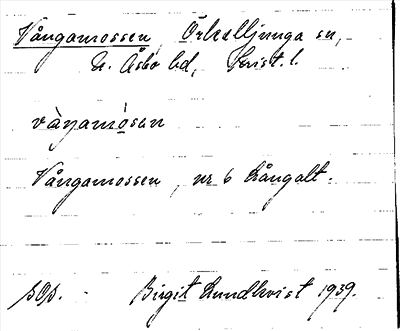 Vångamossen, Örkelljunga sn,
N. Åsbo hd, Krist. l.
vàŋamòsən
Vångamossen, nr 6 Långalt.
Birgit Lundkvist 1939.